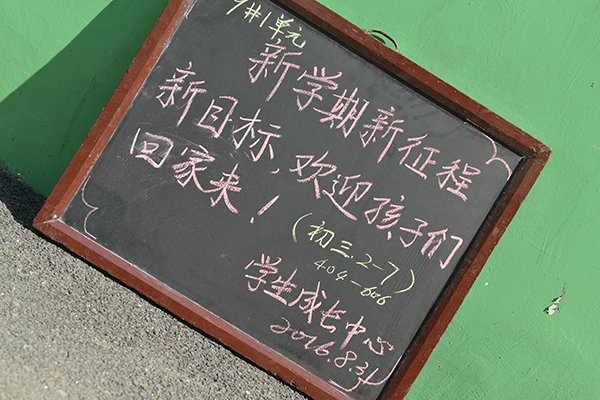 9#1单元
新学期新征程
新目标，欢迎孩子们
回家来！
（初三.2-7）
404-606
学生成长中心
2016.8.31